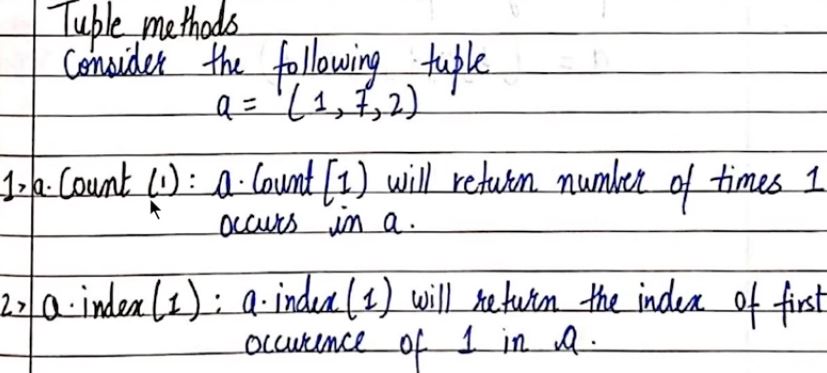 Tuple methods
Consider the following tuple
a = (1, 7, 2)
1> a. Count (1) : a. Count [1) will return number of times 1
occurs in a.
2> a. index (1) : a. index (1) will return the index of first
occurence of 1 in a.